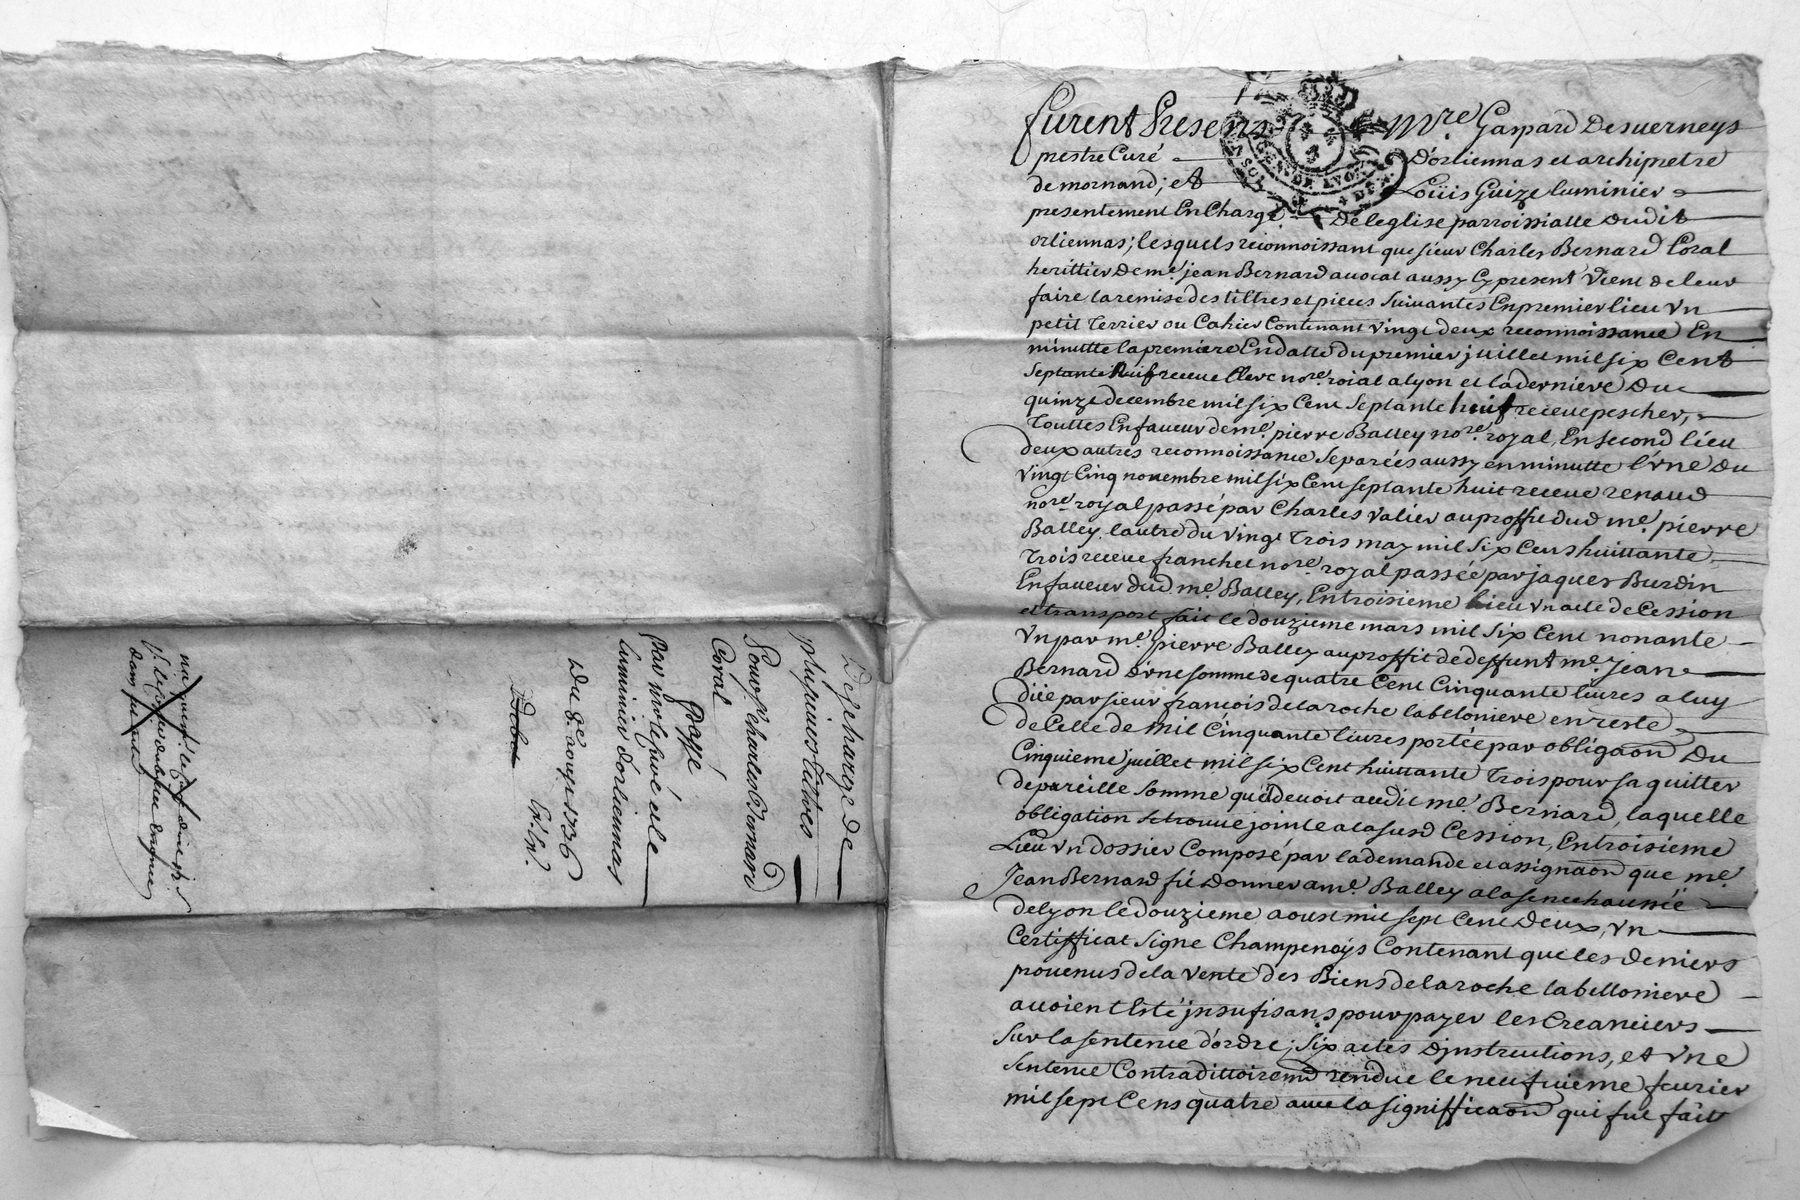 furent Presens Mre. Gaspard Desverneys
prestre Curé D'orliennas et archipretre
de mornand; et Loüis Guize luminier
presentement En Charge De leglise parroissialle dudit
orliennas; lesquels reconnoissant que sieur Charles Bernard Coral
herittier de me. jean Bernard avocat aussy Cy present vient de leur
faire la remise des tiltres et pieces suivantes En premier lieu vn
petit Terrier ou Cahier Contenant vingt deux reconnoissance En
minutte la premiere En datte du premier juillet mil six Cent
septante huit receue Clerc nore. roial a lyon et la derniere du
quinze decembre mil six Cent septante huit receue pescher,
Touttes En faveur de me. pierre Balley nore. royal, En second lieu
deux autres reconnoissance separées aussy en minutte l'vne du
vingt Cinq novembre mil six Cent septante huit receue renaud
nore. royal passé par Charles valier au proffit dud me. pierre
Balley lautre du vingt Trois may mil six Cens huittante
Trois receue franchet nore. royal passée par jaques Burdin
En faveur dud. me. Balley, En troisieme lieu vn acte de Cession
et transport fait le douzieme mars mil six Cent nonante
vn par me. pierre Balley au proffit de deffunt me. jean
Bernard d'vne somme de quatre Cent Cinquante livres a luy
düe par sieur françois de laroche labelloniere en reste
de Celle de mil Cinquante livres portée par obligaon du
Cinquieme juillet mil six Cent huittante Trois pour sa quitter
de pareille somme quil devoit audit me. Bernard, laquelle
obligation se trouve jointe a la susd Cession, En troisieme
Lieu vn dossier Composé par la demande et assignaon que me.
Jean Bernard fit donner a me. Balley a la senechaussée
de lyon le douzieme aoust mil sept Cent deux, vn
Certifficat signe Champenoys Contenant que les deniers
provenus de la vente des Biens de laroche labelloniere
avoient Esté jnsufisans pour payer les Creanciers
sur la sentence d'ordre; six actes d'jnstructions, et vne
sentence Contradittoiremt rendue le neufvieme fevrier
mil sept Cens quatre avec la signifficaon qui fut fait
Descharge de
plusieurs tiltres
Pour sr. charles Bernard
Coral
Passé
par mre le curé et le
luminier dorliennas
Du 8e. aoust 1736